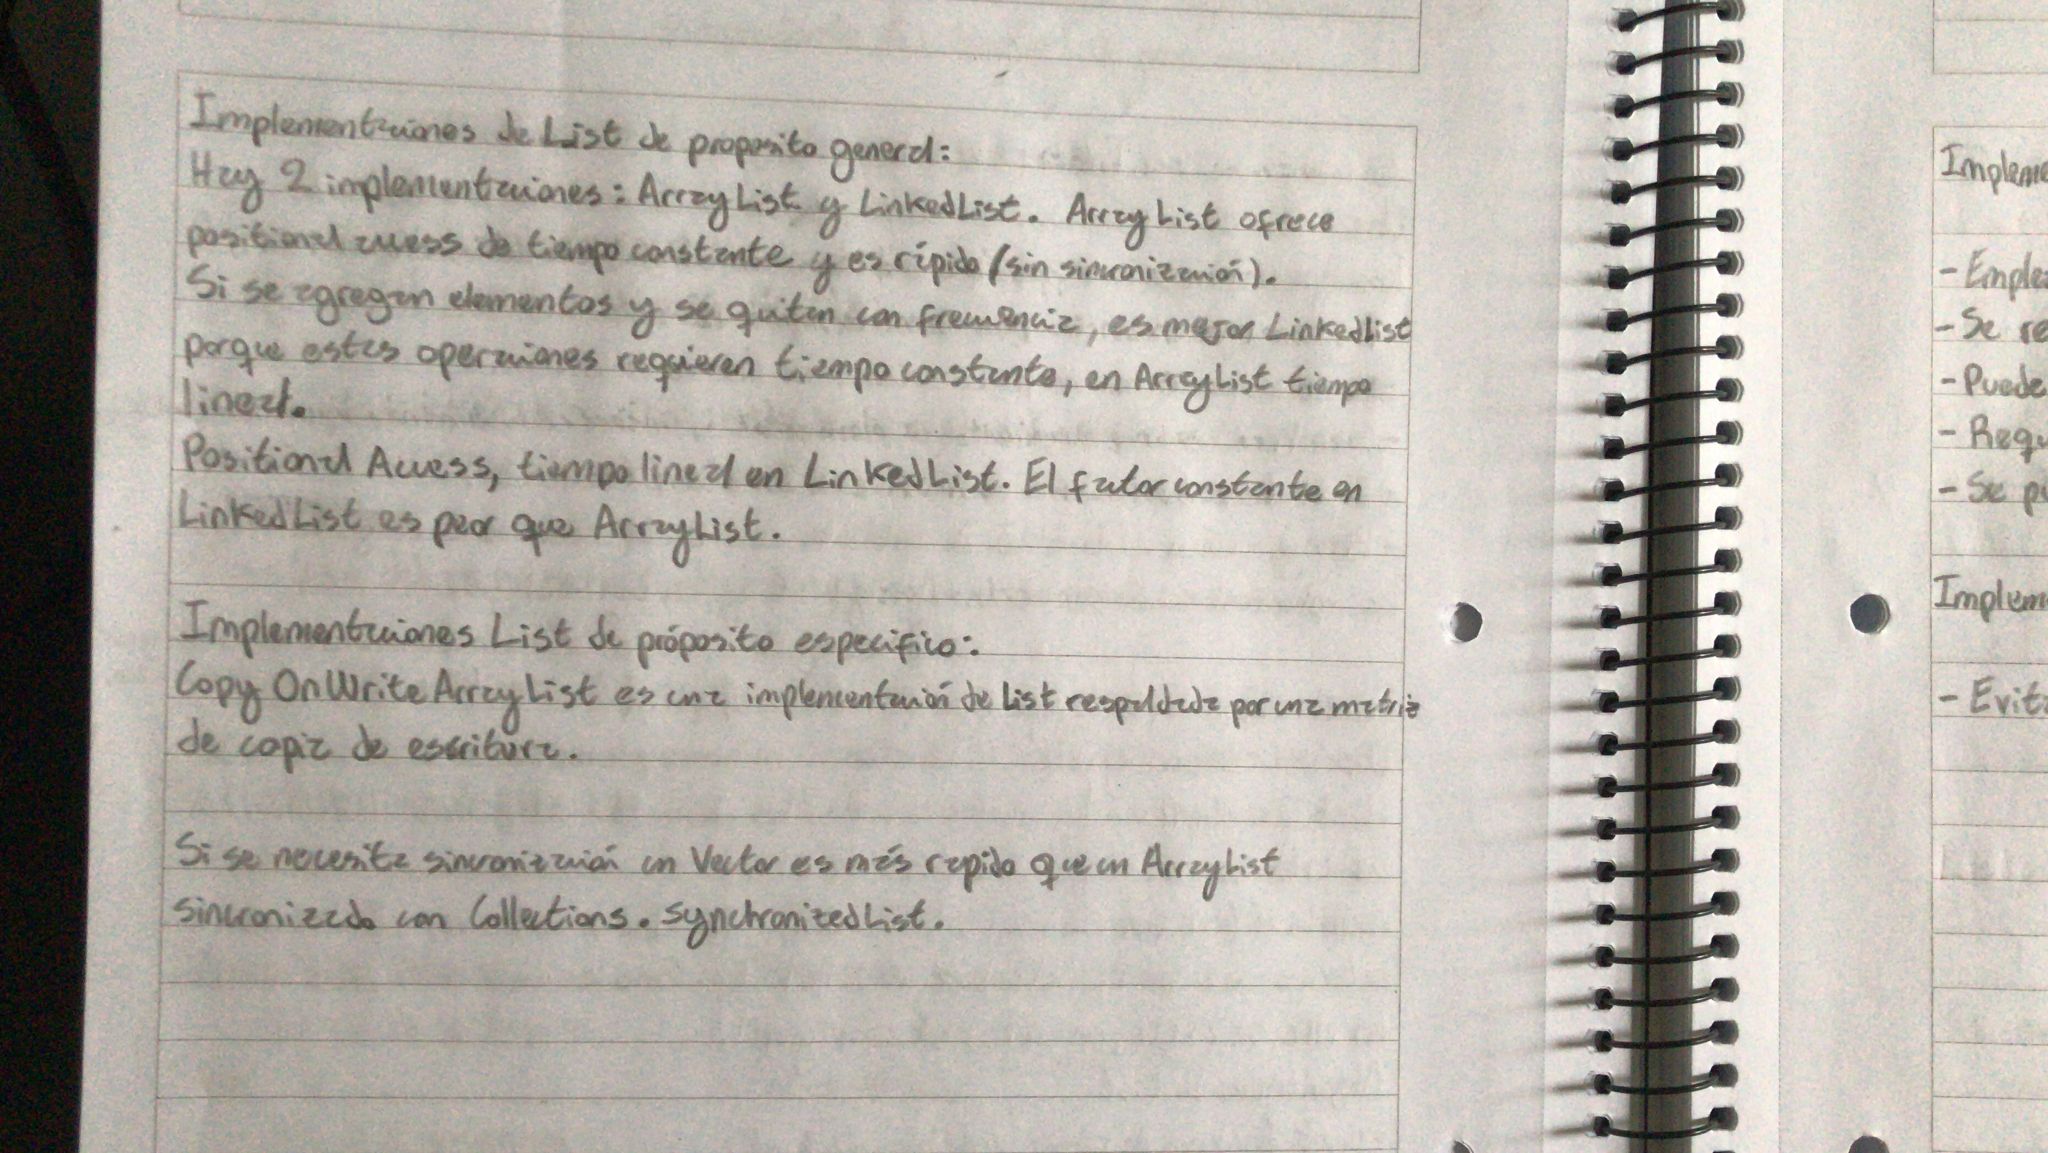 Implementaciones de List de proposito general:
Hay 2 implementaciones: ArrayList y LinkedList. ArrayList ofrece
positional access de tiempo constante y es rápido (sin sincronización).
Si se agregan elementos y se quitan con frecuencia, es mejor LinkedList
porque estas operaciones requieren tiempo constante, en ArrayList tiempo
lineal.
Positional Access, tiempo lineal en LinkedList. El factor constante en
LinkedList es peor que ArrayList.
Implementaciones List de próposito especifico:
CopyOnWriteArrayList es una implementación de List respaldada por una matriz
de copia de escritura.
Si se necesita sincronización un Vector es más rapido que un ArrayList
sincronizado con Collections.synchronizedList.
Impleme
- Emplea
- Se re
- Puede
- Requ
- Se pu
Implem
- Evita